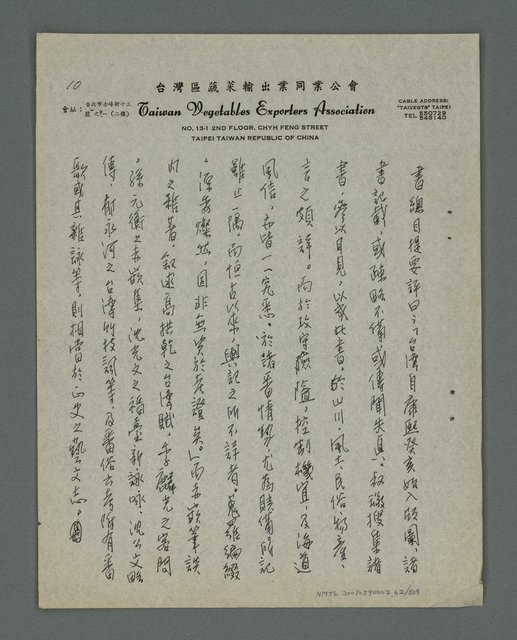 10
台灣區蔬菜輸出業同業公會
會址：台北市赤峰街十三號之一(二樓)
Taiwan Vegetables Exporters Association
NO. 13-1 2ND FLOOR, CHYH FENG STREET
TAIPEI TAIWAN REPUBLIC OF CHINA
CABLE ADDRESS:
"TAIVEGTS" TAIPEI
TEL 550729
546140
書總目提要評曰：「台灣自康熙癸亥始入版圖，諸
書記載，或疎略不備，或傳聞失真。叔璥搜集諸
書，參以目見，以成此書。於山川、風土、民俗、物產，
言之頗詳。而於攻守險隘，控制機宜，及海道
風信，亦皆一一究悉。於諸番情勢，尤為賅備。所記
雖止一隅，而恒古以來，輿記之所不詳者，蒐羅編綴
，源委燦然，固非無資於考證矣。」而赤嵌筆談
內之雜著，敘述高拱乾之台灣賦，李麟光之客問
，孫元衡之赤嵌集，沈光文之福臺新詠，沈公文略
傳，郁永河之台灣竹枝詞等，及番俗六考附有番
歌或其雜詠等，則相當於正史之藝文志。
NMTL 20070590002 62/309